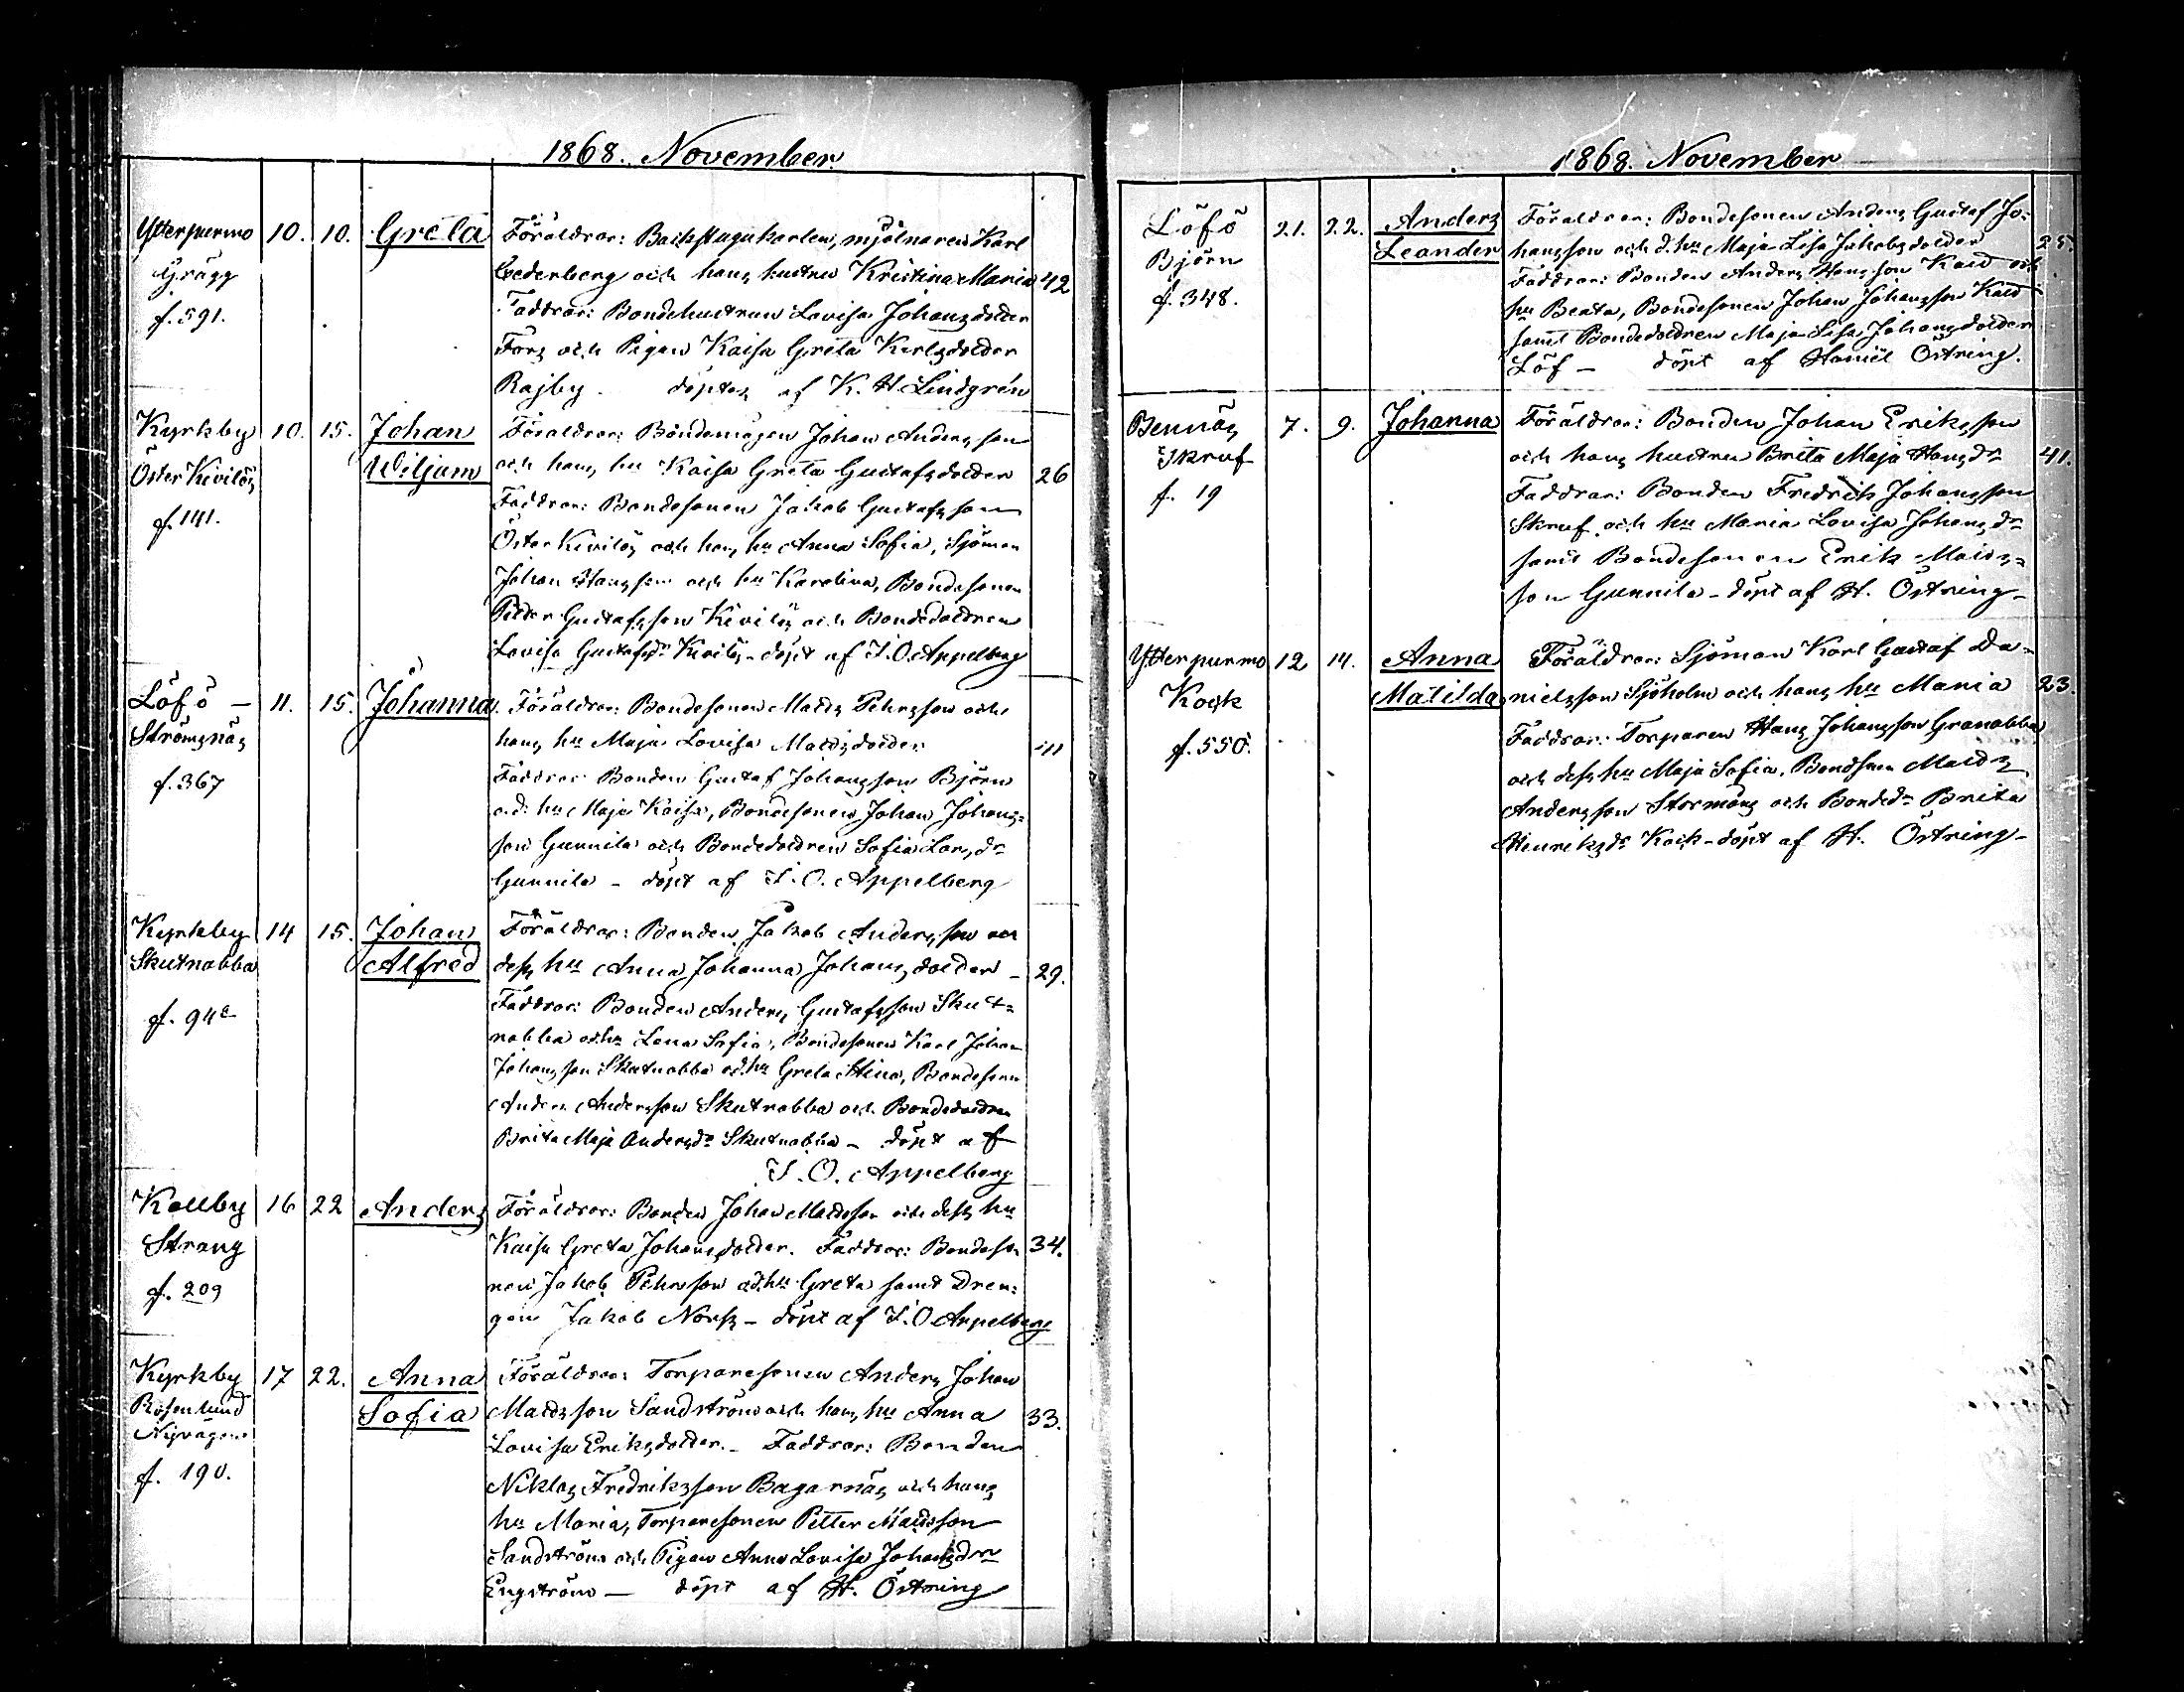 1868. November.
Ytterpurmo 10. 10. Greta Föräldrar: Backstugukarlen, mjölnaren Karl
Grägg Cederberg och hans hustru Kristina Maria 42
f. 591. Faddrar: Bondehustrun Lovisa Johansdotter
Förs och Pigan Kaisa Greta Karlsdotter
Rajby döptes af K. H. Lindgrén
Kyrkby 10. 15. Johan Föräldrar: Bondemågen Johan Andersson
Öster Kivilös Wiljam och hans hu Kaisa Greta Gustafsdotter 26
f. 141. Faddrar: Bondesonen Jakob Gustafsson
Öster Kivilös och hans hu Anna Sofia, Sjöman
Johan Hansson och hu Karolina, Bondesonen
Petter Gustafsson Kivilös och Bondedottren
Lovisa Gustafsdr Kivilös – döpt af I. O. Appelberg
Löfö – 11. 15. Johanna. Föräldrar: Bondesonen Matts Pehrsson och
Strömsnäs hans hu Maja Lovisa Mattsdotter
f. 367 Faddrar: Bonden Gustaf Johansson Björn
o. d. hu Maja Kaisa, Bondesonen Johan Johans=
son Gunnila och Bondedottren Sofia Lars,dr
Gunnila – döpt af I. O. Appelberg
Kyrkby 14 15. Johan Föräldrar: Bonden Jakob Andersson och
Skutnabba Alfred dess hu Anna Johanna Johansdotter – 29.
f. 94 Faddrar: Bonden Anders Gustafsson Skut=
nabba o d hu Lena Sofia, Bondesonen Karl Johan
Johansson Skutnabba o d. hu Greta Stina, Bondesonen
Anders Andersson Skutnabba och Bondedottren
Brita Maja Andersdr Skutnabba – döpt af
I. O. Appelberg
Kållby 16 22 Anders Föräldrar: Bonden Johan Mattsson och dess hu
Strang Kaisa Greta Johansdotter. Faddrar: Bondeso 34.
f. 209 nen Jakob Pehrsson o d. hu Greta samt Dren=
gen Jakob Norss – döpt af I. O Appelberg
Kyrkby 17 22. Anna Föräldrar: Torparesonen Anders Johan
Rosenlund Sofia Mattsson Sandström och hans hu Anna 33.
Lovisa Eriksdotter. – Faddrar: Bonden
f. 190. Niklas Fredriksson Bagarnäs och hans
hu Maria, Torparesonen Petter Mattsson
Sandström och Pigan Anna Lovisa Johansdr
Engström – döpt af H. Östring
1868. November
Löfö 21. 22. Anders Föräldrar: Bondesonen Anders Gustaf Jo=
Björn Leander hansson och d. hu Maja Lisa Jakobsdotter 25.
f. 348. Faddrar: Bonden Anders Hansson Kald och
hu Beata, Bondesonen Johan Johansson Kald
samt Bondedottren Maja Lisa Johansdotter
Löf – döpt af Haniel Östring.
Bennäs 7. 9. Johanna Föräldrar: Bonden Johan Eriksson
Skruf och hans hustru Brita Maja Hansdr 41.
f. 19 Faddrar: Bonden Fredrik Johansson
Skruf och hu Maria Lovisa Johansdr
samt Bondesonen Erik Matts,=
son Gunnila – döpt af H. Östring –
Ytterpurmo 12 14. Anna Föräldrar: Sjöman Karl Gustaf Da=
Kock Matilda nielsson Sjöholm och hans hu Maria 23.
f. 550. Faddrar: Torparen Hans Johansson Granabba
och dess hu Maja Sofia, Bondsonen Matts
Andersson Stormåns och Bonded:r Brita
Henriksdr Kock – döpt af H. Östring –